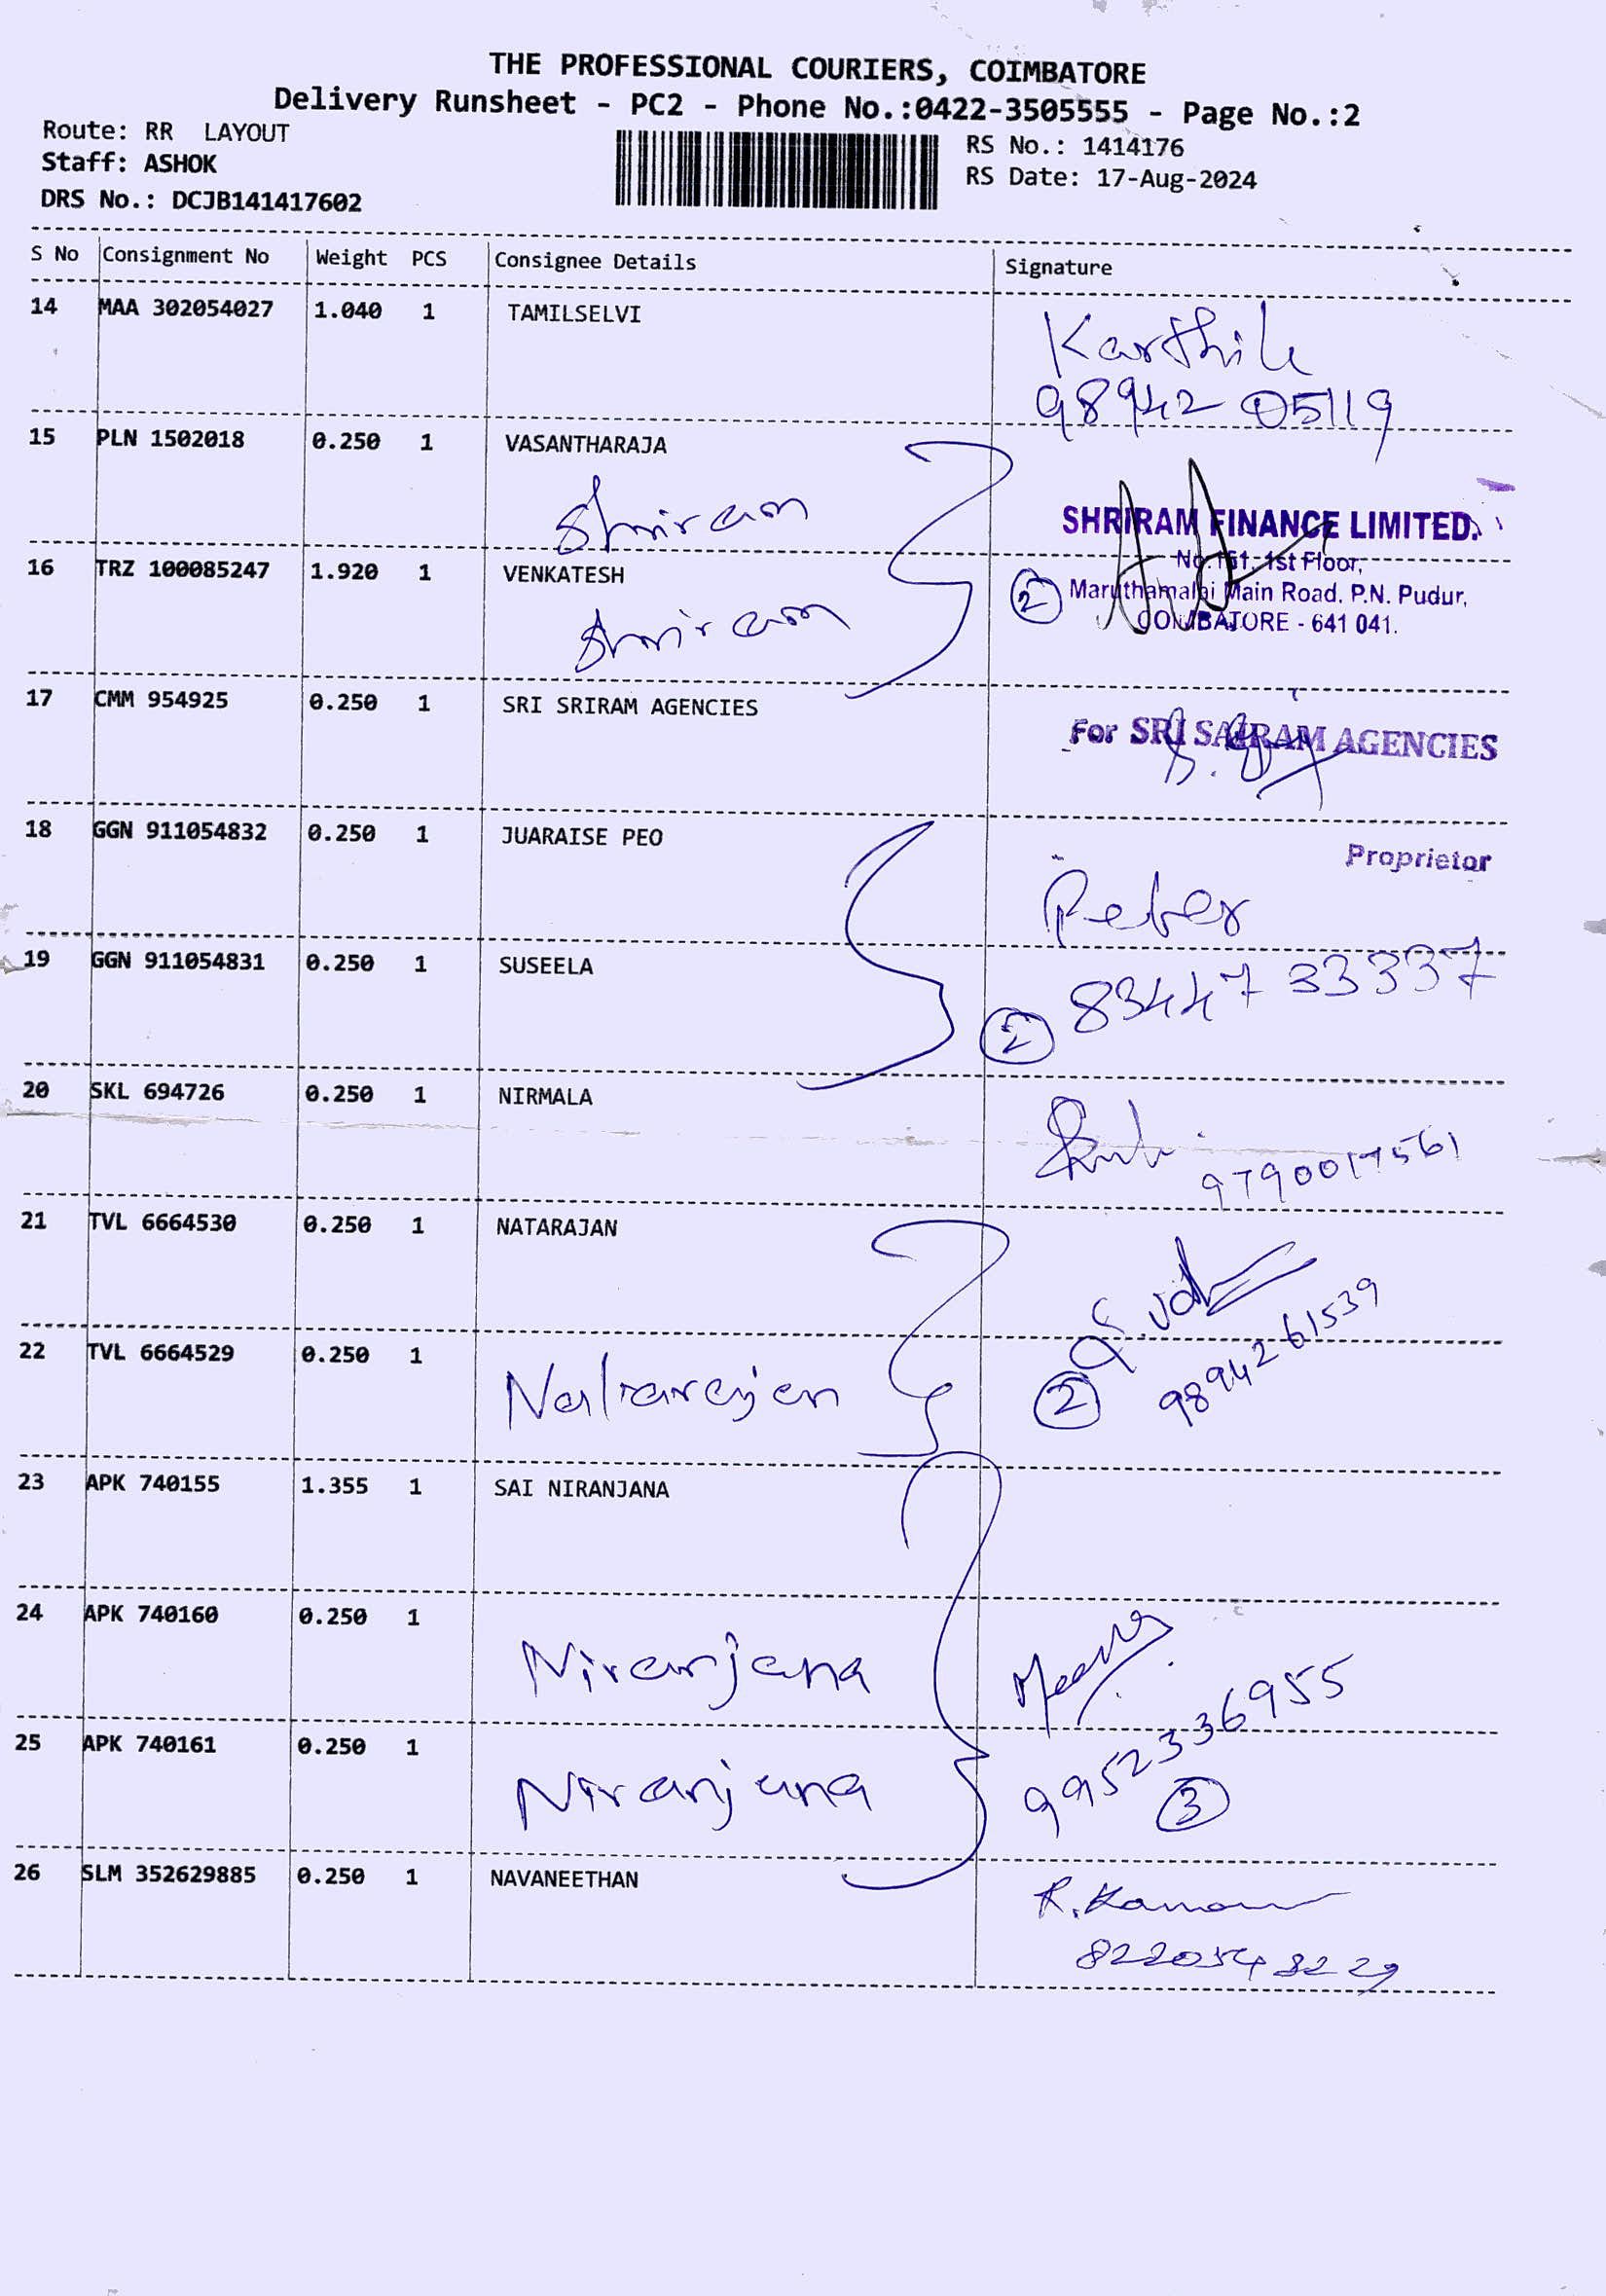 THE PROFESSIONAL COURIERS, COIMBATORE
Delivery Runsheet - PC2 - Phone No.:0422-3505555 - Page No.:2
Route: RR LAYOUT
Staff: ASHOK
DRS No.: DCJB141417602
RS No.: 1414176
RS Date: 17-Aug-2024
S No Consignment No Weight PCS Consignee Details Signature
14 MAA 302054027 1.040 1 TAMILSELVI
Karthik
98942 05119
15 PLN 1502018 0.250 1 VASANTHARAJA
Shriram
SHRIRAM FINANCE LIMITED.
No.151, 1st Floor,
Maruthamalai Main Road, P.N. Pudur,
COIMBATORE - 641 041.
16 TRZ 100085247 1.920 1 VENKATESH
Shriram
2
17 CMM 954925 0.250 1 SRI SRIRAM AGENCIES
For SRI SAIRAM AGENCIES
Proprietor
18 GGN 911054832 0.250 1 JUARAISE PEO
Peter
19 GGN 911054831 0.250 1 SUSEELA
2 83447 33337
20 SKL 694726 0.250 1 NIRMALA
9790017561
21 TVL 6664530 0.250 1 NATARAJAN
22 TVL 6664529 0.250 1
Natarajan
2
9894261539
23 APK 740155 1.355 1 SAI NIRANJANA
24 APK 740160 0.250 1
Niranjana
25 APK 740161 0.250 1
Niranjana
9952336955
3
26 SLM 352629885 0.250 1 NAVANEETHAN
R. Kannan
8220543229